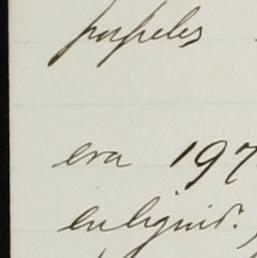 papeles
era 197
en liquid.